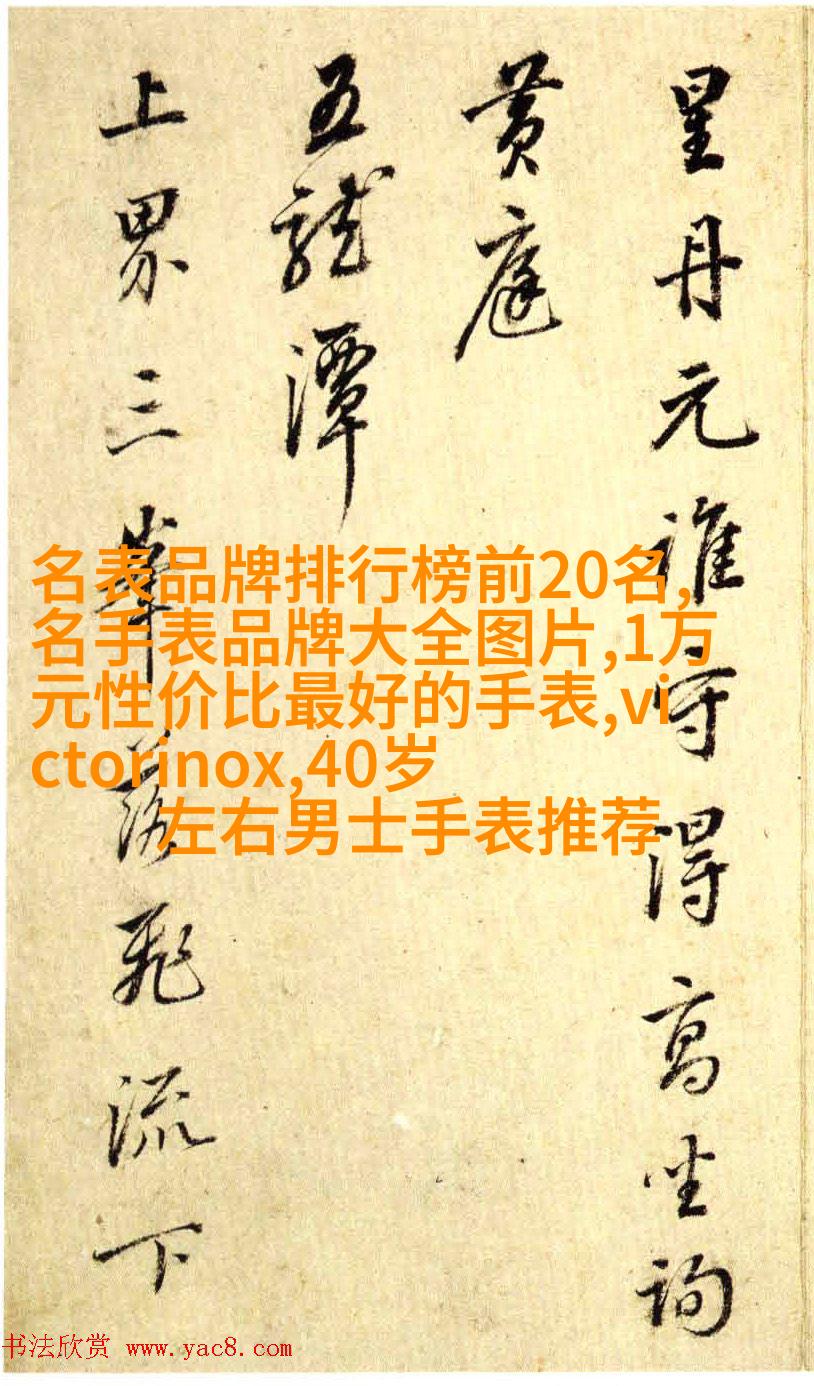 星丹元誰守得高坐詢
黄庭
五龍潭
上界三峯飛流下
名表品牌排行榜前20名,
名手表品牌大全图片,1万
元性价比最好的手表,vi
ctorinox,40岁
左右男士手表推荐
书法欣赏 www.yac8.com